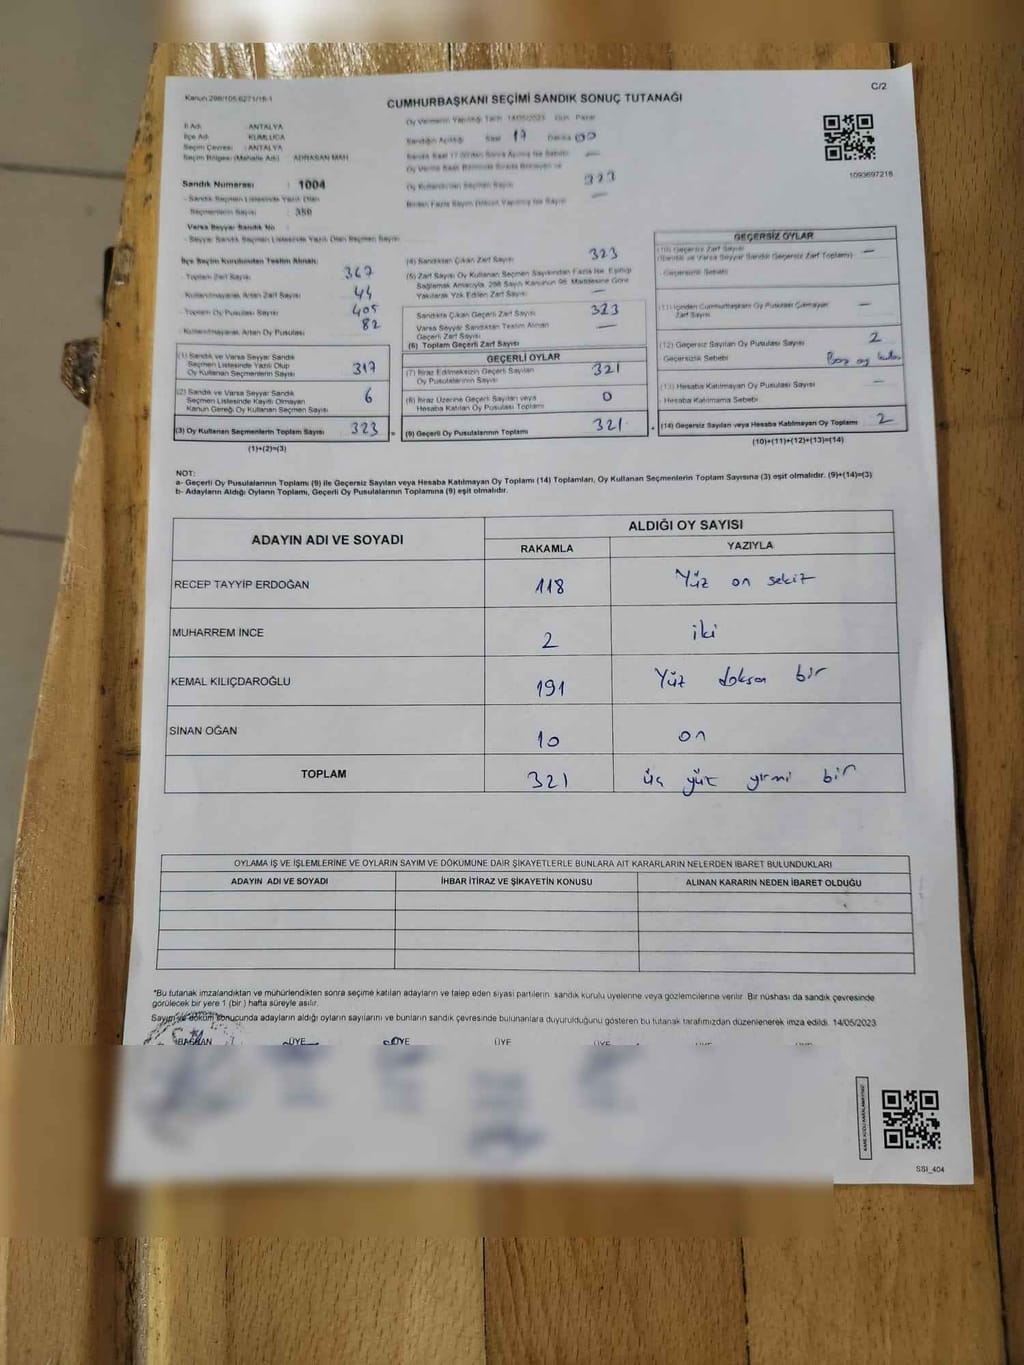 Kanun 298/105 6271/16-1
C/2
CUMHURBAŞKANI SEÇİMİ SANDIK SONUÇ TUTANAĞI
Oy Vermenin Yapıldığı Tarih 14/05/2023 Gün Pazar
İl Adı ANTALYA
Sandığın Açıldığı Saat 17 Dakika 00
İlçe Adı KUMLUCA
Seçim Çevresi : ANTALYA
Seçim Bölgesi (Mahalle Adı) ADRASAN MAH
1093697218
Sandık Numarası : 1004
Oy Kullandırılan Seçmen Sayısı 323
- Sandık Seçmen Listesinde Yazılı Olan
Seçmenlerin Sayısı : 359
Varsa Seyyar Sandık No
- Seyyar Sandık Seçmen Listesinde Yazılı Olan Seçmen Sayısı
İlçe Seçim Kurulundan Teslim Alınan
- Toplam Zarf Sayısı 367
Kullanılmayarak Artan Zarf Sayısı 44
- Toplam Oy Pusulası Sayısı 405
- Kullanılmayarak Artan Oy Pusulası 82
(1) Sandık ve Varsa Seyyar Sandık
Seçmen Listesinde Yazılı Olup
Oy Kullanan Seçmenlerin Sayısı 317
(2) Sandık ve Varsa Seyyar Sandık
Seçmen Listesinde Kayıtlı Olmayan
Kanun Gereği Oy Kullanan Seçmen Sayısı 6
(3) Oy Kullanan Seçmenlerin Toplam Sayısı 323
(1)+(2)=(3)
(4) Sandıktan Çıkan Zarf Sayısı 323
(5) Zarf Sayısı Oy Kullanan Seçmen Sayısından Fazla ise, Eşitliği
Sağlamak Amacıyla, 298 Sayılı Kanunun 98. Maddesine Göre
Yakılarak Yok Edilen Zarf Sayısı —
Sandıkta Çıkan Geçerli Zarf Sayısı 323
Varsa Seyyar Sandıktan Teslim Alınan
Geçerli Zarf Sayısı —
(6) Toplam Geçerli Zarf Sayısı
GEÇERLİ OYLAR
(7) İtiraz Edilmeksizin Geçerli Sayılan
Oy Pusulalarının Sayısı 321
(8) İtiraz Üzerine Geçerli Sayılan veya
Hesaba Katılan Oy Pusulası Toplamı 0
(9) Geçerli Oy Pusulalarının Toplamı 321
GEÇERSİZ OYLAR
(10) Geçersiz Zarf Sayısı —
(Sandık ve Varsa Seyyar Sandık Geçersiz Zarf Toplamı)
Geçersizlik Sebebi
(11) İçinden Cumhurbaşkanı Oy Pusulası Çıkmayan
Zarf Sayısı —
(12) Geçersiz Sayılan Oy Pusulası Sayısı 2
Geçersizlik Sebebi Boş oy
(13) Hesaba Katılmayan Oy Pusulası Sayısı —
Hesaba Katılmama Sebebi
(14) Geçersiz Sayılan veya Hesaba Katılmayan Oy Toplamı 2
(10)+(11)+(12)+(13)=(14)
NOT:
a- Geçerli Oy Pusulalarının Toplamı (9) ile Geçersiz Sayılan veya Hesaba Katılmayan Oy Toplamı (14) Toplamları, Oy Kullanan Seçmenlerin Toplam Sayısına (3) eşit olmalıdır. (9)+(14)=(3)
b- Adayların Aldığı Oyların Toplamı, Geçerli Oy Pusulalarının Toplamına (9) eşit olmalıdır.
ADAYIN ADI VE SOYADI
ALDIĞI OY SAYISI
RAKAMLA YAZIYLA
RECEP TAYYİP ERDOĞAN 118 Yüz on sekiz
MUHARREM İNCE 2 iki
KEMAL KILIÇDAROĞLU 191 Yüz doksan bir
SİNAN OĞAN 10 on
TOPLAM 321 üç yüz yirmi bir
OYLAMA İŞ VE İŞLEMLERİNE VE OYLARIN SAYIM VE DÖKÜMÜNE DAİR ŞİKAYETLERLE BUNLARA AİT KARARLARIN NELERDEN İBARET BULUNDUKLARI
ADAYIN ADI VE SOYADI İHBAR İTİRAZ VE ŞİKAYETİN KONUSU ALINAN KARARIN NEDEN İBARET OLDUĞU
*Bu tutanak imzalandıktan ve mühürlendikten sonra seçime katılan adayların ve talep eden siyasi partilerin sandık kurulu üyelerine veya gözlemcilerine verilir. Bir nüshası da sandık çevresinde
görülecek bir yere 1 (bir) hafta süreyle asılır.
Sayım ve döküm sonucunda adayların aldığı oyların sayılarını ve bunların sandık çevresinde bulunanlara duyurulduğunu gösteren bu tutanak tarafımızdan düzenlenerek imza edildi. 14/05/2023
BAŞKAN ÜYE ÜYE ÜYE ÜYE
SSI_404